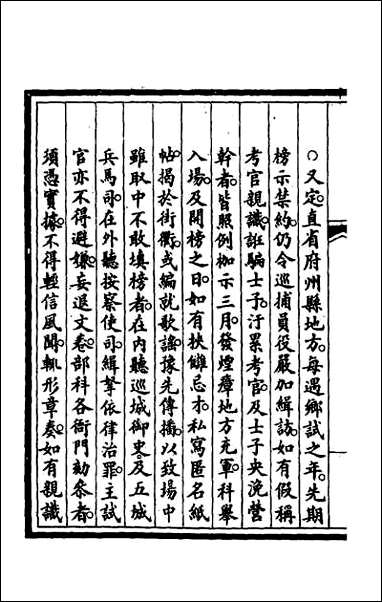 ○又定。直省府州縣地方。每遇鄉試之年。先期
榜示禁約。仍令巡捕員役嚴加緝訪。如有假稱
考官親識。誑騙士子。汙累考官。及士子央浼營
幹者。皆照例枷示三月。發煙瘴地方充軍。科舉
入場。及開榜之日。如有挾讎忌才。私寫匿名紙
帖。揭於街衢。或編就歌謠。豫先傳播。以致場中
雖取中不敢填榜者。在内聽巡城御史。及五城
兵馬司。在外聽按察使司。緝拏依律治罪。主試
官亦不得避嫌。妄退文卷。部科各衙門劾參者。
須憑實據。不得輕信風聞。輒形章奏。如有親識